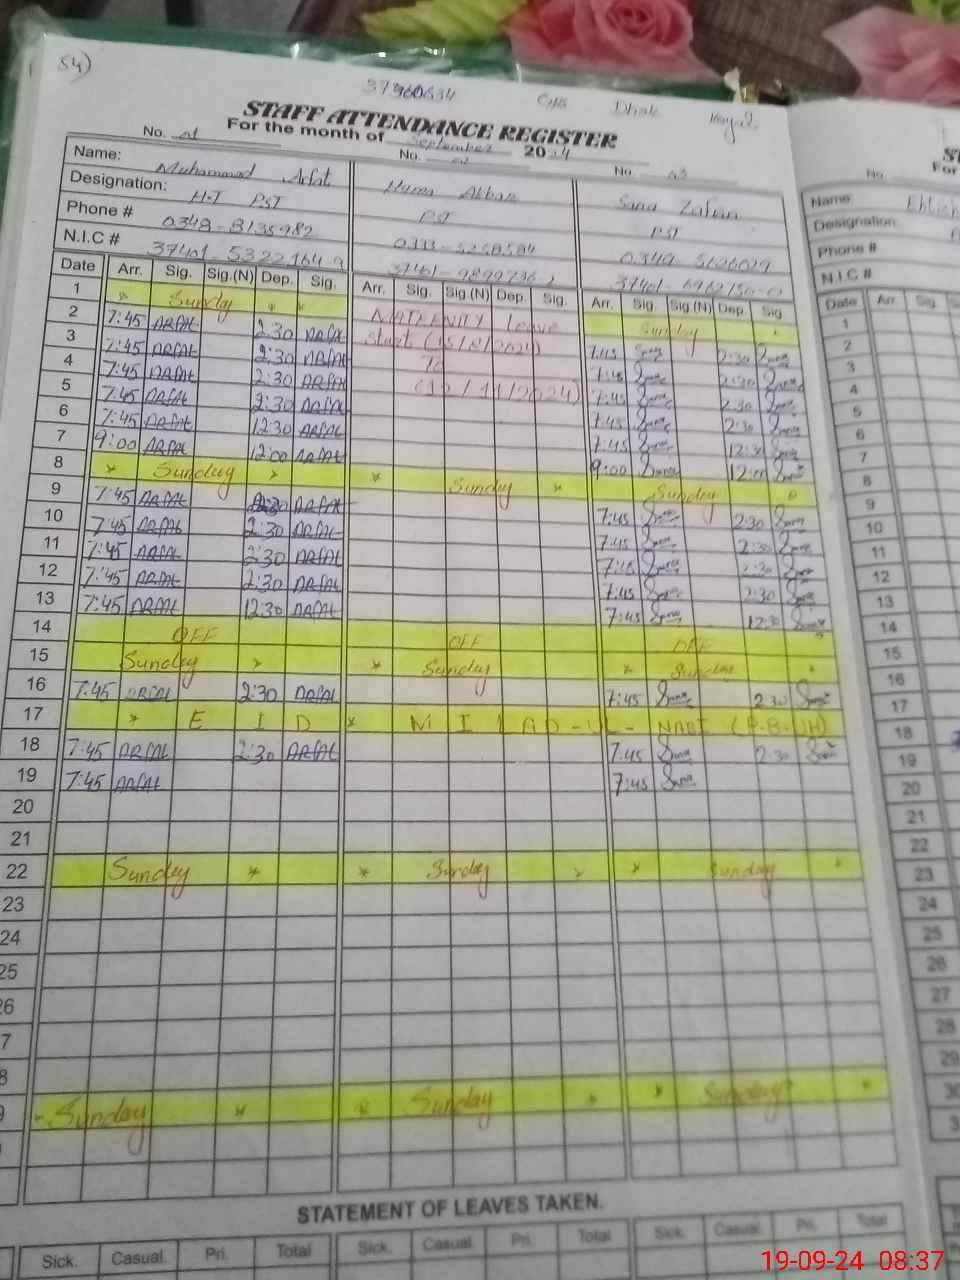 54)
37360634
Dhok
STAFF ATTENDANCE REGISTER
For the month of September 2024
No. 01 No. No. 03
Name: Muhammad Arfat Huma Akbar Sana Zafran
Designation: H.T PST PST PST
Phone # 0348-8135982 0333-5258584 0349
N.I.C # 37401-5322164-9 37401-
Date Arr. Sig. Sig.(N) Dep. Sig. Arr. Sig. Sig.(N) Dep. Sig. Arr. Sig. Sig.(N) Dep. Sig.
1 * Sunday * * MATERNITY Leave Sunday
2 7:45 ARfAt 2:30 ARfAt Starts (15/8/2024) 7:45 Sana 2:30 Sana
3 7:45 ARfAt 2:30 ARfAt To 7:45 Sana 2:30 Sana
4 7:45 ARfAt 2:30 ARfAt (12/11/2024) 7:45 Sana 2:30 Sana
5 7:45 ARfAt 2:30 ARfAt 7:45 Sana 2:30 Sana
6 7:45 ARfAt 12:30 ARfAt 7:45 Sana 12:30 Sana
7 9:00 ARfAt 12:00 ARfAt 9:00 Sana 12:00 Sana
8 * Sunday * * Sunday * Sunday
9 7:45 ARfAt 2:30 ARfAt 7:45 Sana 2:30 Sana
10 7:45 ARfAt 2:30 ARfAt 7:45 Sana 2:30 Sana
11 7:45 ARfAt 2:30 ARfAt 7:45 Sana 2:30 Sana
12 7:45 ARfAt 2:30 ARfAt 7:45 Sana 2:30 Sana
13 7:45 ARfAt 12:30 ARfAt 7:45 Sana 12:30 Sana
14 OFF OFF OFF
15 Sunday * * Sunday * Sunday *
16 7:45 ARfAt 2:30 ARfAt 7:45 Sana 2:30 Sana
17 * E I D * M I L A D - UL - NABI (P.B.U.H)
18 7:45 ARfAt 2:30 ARfAt 7:45 Sana 2:30 Sana
19 7:45 ARfAt 7:45 Sana
20
21
22 Sunday * * Sunday * * Sunday *
23
24
25
26
7
8
9 * Sunday * * Sunday * * Sunday *
STATEMENT OF LEAVES TAKEN.
Sick. Casual. Pri. Total Sick. Casual Pri. Total Sick. Casual. Pri. Total
No.
For
Name
Designation:
Phone #
N.I.C #
Date Arr. Sig.
1
2
3
4
5
6
7
8
9
10
11
12
13
14
15
16
17
18
19
20
21
22
23
24
25
26
27
28
29
30
3
19-09-24 08:37